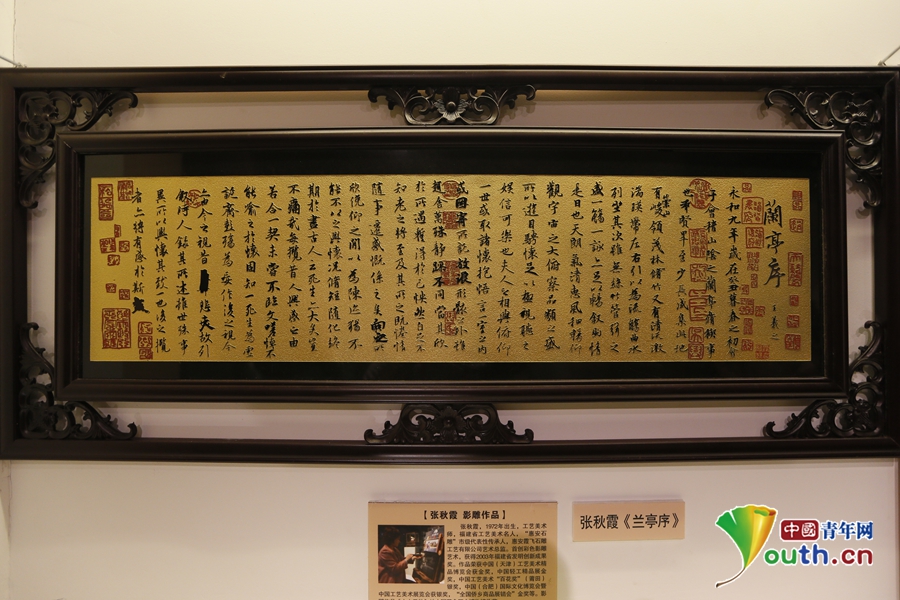 蘭亭序
王羲之
永和九年歲在癸丑暮春之初會
于會稽山陰之蘭亭脩禊事
也羣賢畢至少長咸集此地
有崇山峻領茂林脩竹又有清流激
湍暎帶左右引以為流觴曲水
列坐其次雖無絲竹管弦之
盛一觴一詠亦足以暢敘幽情
是日也天朗氣清惠風和暢仰
觀宇宙之大俯察品類之盛
所以遊目騁懷足以極視聽之
娛信可樂也夫人之相與俯仰
一世或取諸懷抱悟言一室之內
或因寄所託放浪形骸之外雖
趣舍萬殊靜躁不同當其欣
於所遇暫得於己快然自足不
知老之將至及其所之既惓情
隨事遷感慨係之矣向之所
欣俛仰之閒以為陳迹猶不
能不以之興懷況脩短隨化終
期於盡古人云死生亦大矣豈
不痛哉每攬昔人興感之由
若合一契未嘗不臨文嗟悼不
能喻之於懷固知一死生為虛
誕齊彭殤為妄作後之視今
亦由今之視昔悲夫故列
敘時人錄其所述雖世殊事
異所以興懷其致一也後之攬
者亦將有感於斯文
【张秋霞 影雕作品】
张秋霞，1972年出生，工艺美术
师，福建省工艺美术名人，“惠安石
雕”市级代表性传承人，惠安雷飞石雕
工艺有限公司艺术总监。首创彩色影雕
艺术，获得2003年福建省发明创新成果
奖。作品荣获中国（天津）工艺美术精
品博览会获金奖，中国轻工精品展金
奖，中国工艺美术“百花奖”（莆田）
银奖，中国（合肥）国际文化博览会暨
中国工艺美术展览会获银奖，“全国侨乡商品展销会”金奖等。影
张秋霞《兰亭序》
中国青年网
Youth.cn